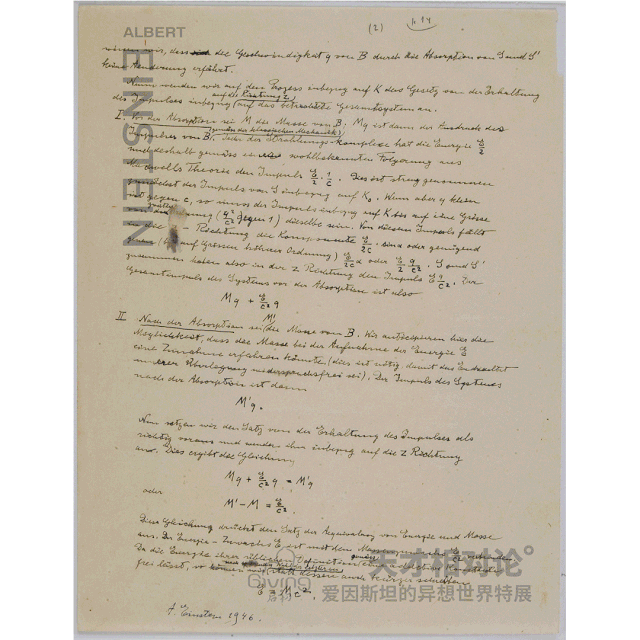 ALBERT
EINSTEIN
(2)
wissen wir, dass die Geschwindigkeit q von B durch die Absorption von S und S'
keine Aenderung erfährt.
Nun wenden wir auf den Prozess inbezug auf K das Gesetz von der Erhaltung
des Impulses inbezug auf das betrachtete Gesamtsystem an.
I Vor der Absorption sei M die Masse von B; Mq ist dann der Ausdruck des
Impulses von B (gemäss der klassischen Mechanik). Jeder der Strahlungs-Komplexe hat die Energie E/2
und deshalb gemäss einer wohlbekannten Folgerung aus
Maxwells Theorie den Impuls E/2 · 1/c. Dies ist streng genommen
zunächst der Impuls von S inbezug auf K₀. Wenn aber q klein
ist gegen c, so muss der Impuls inbezug auf K bis auf eine Grösse
(q²/c² gegen 1) dieselbe sein. Von diesem Impuls fällt
in die Richtung die Komponente E/2c sin α oder genügend
(bis auf Grössen höherer Ordnung) E/2c α oder E/2 q/c². S und S'
zusammen haben also in der z Richtung den Impuls E q/c². Der
Gesamtimpuls des Systems vor der Absorption ist also
Mq + E/c² q
II Nach der Absorption sei M' die Masse von B. Wir antizipieren hier die
Möglichkeit, dass die Masse bei der Aufnahme der Energie E
eine Zunahme erfahren könnte (dies ist nötig, damit das Endresultat
unserer Überlegung widerspruchsfrei sei). Der Impuls des Systems
nach der Absorption ist dann
M'q.
Nun setzen wir den Satz von der Erhaltung des Impulses als
richtig voraus und wenden ihn inbezug auf die z Richtung
an. Dies ergibt die Gleichung
Mq + E/c² q = M'q
oder
M' − M = E/c².
Diese Gleichung drückt den Satz der Aequivalenz von Energie und Masse
aus. Der Energie-Zuwachs E ist mit dem Massenzuwachs E/c² verbunden.
Da die Energie ihrer üblichen Definition gemäss eine additive Konstante
frei lässt, so können wir statt dessen auch kürzer schreiben
E = Mc².
A. Einstein 1946.
Giving
天才相对论°
爱因斯坦的异想世界特展